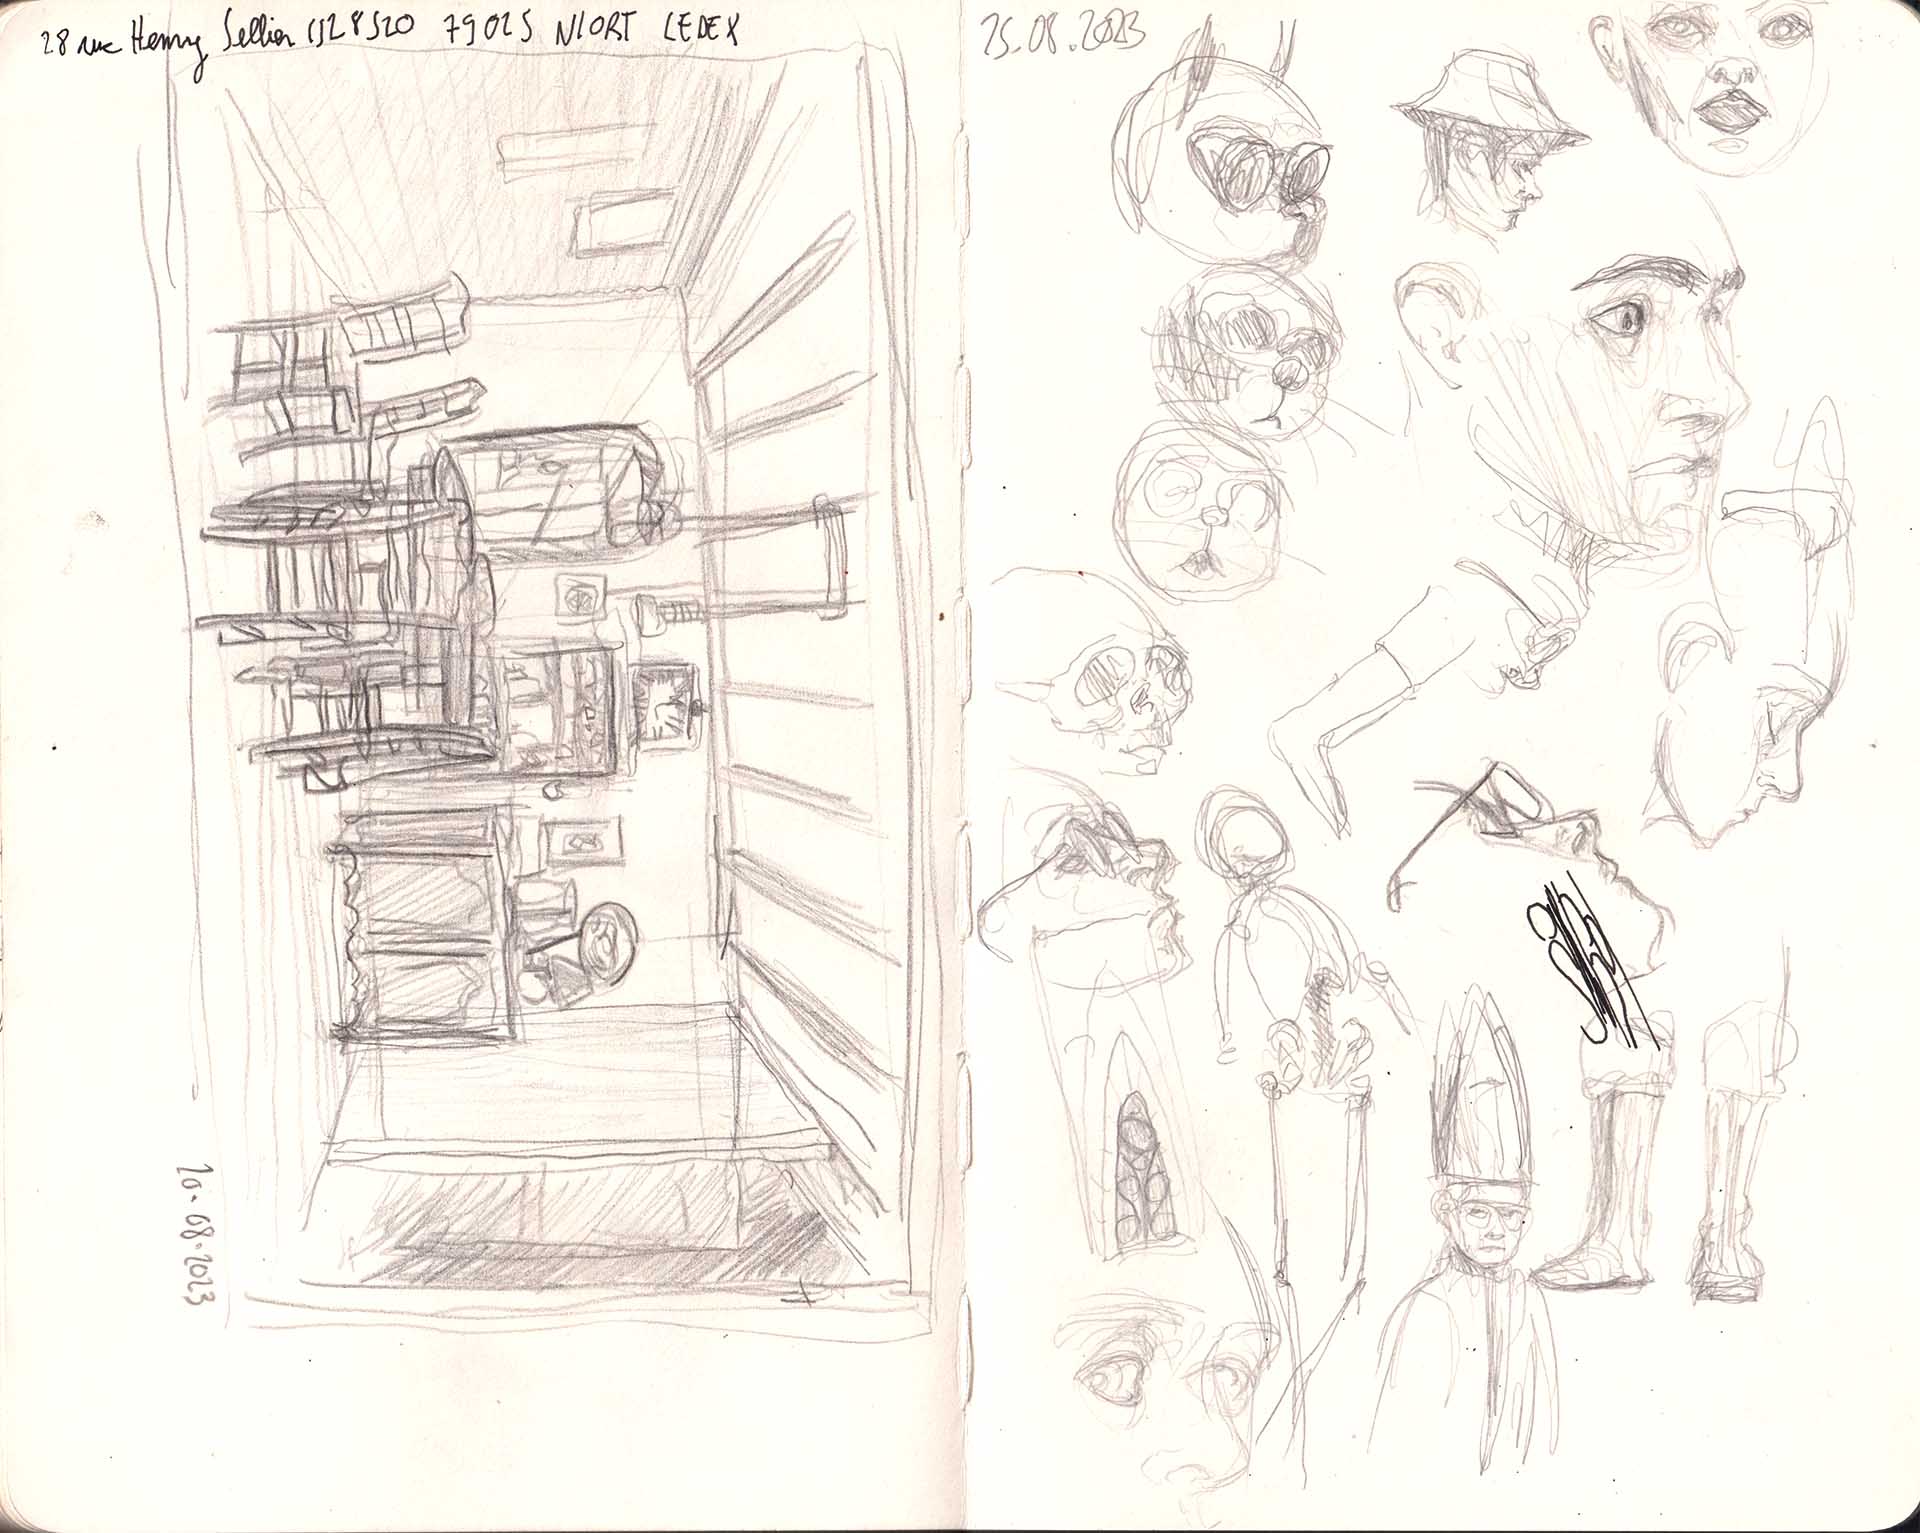 28 rue Henry Sellier CS28520 79025 NIORT CEDEX
20.08.2023
25.08.2023